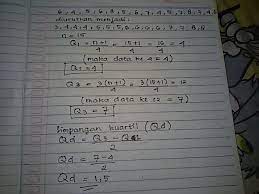 6, 4, 5, 6, 8, 5, 6, 7, 4, 5, 7, 8, 7, 4, 6
diurutkan menjadi:
3, 4, 4, 4, 5, 5, 5, 6, 6, 6, 6, 7, 7, 8, 8
n = 15
Q1 = n+1/4 = 15+1/4 = 16/4 = 4
(maka data ke 4 = 4)
Q1 = 4
Q3 = 3(n+1)/4 = 3(15+1)/4 = 12
(maka data ke 12 = 7)
Q3 = 7
Simpangan kuartil (Qd)
Qd = Q3 - Q1/2
Qd = 7-4/2
Qd = 1,5